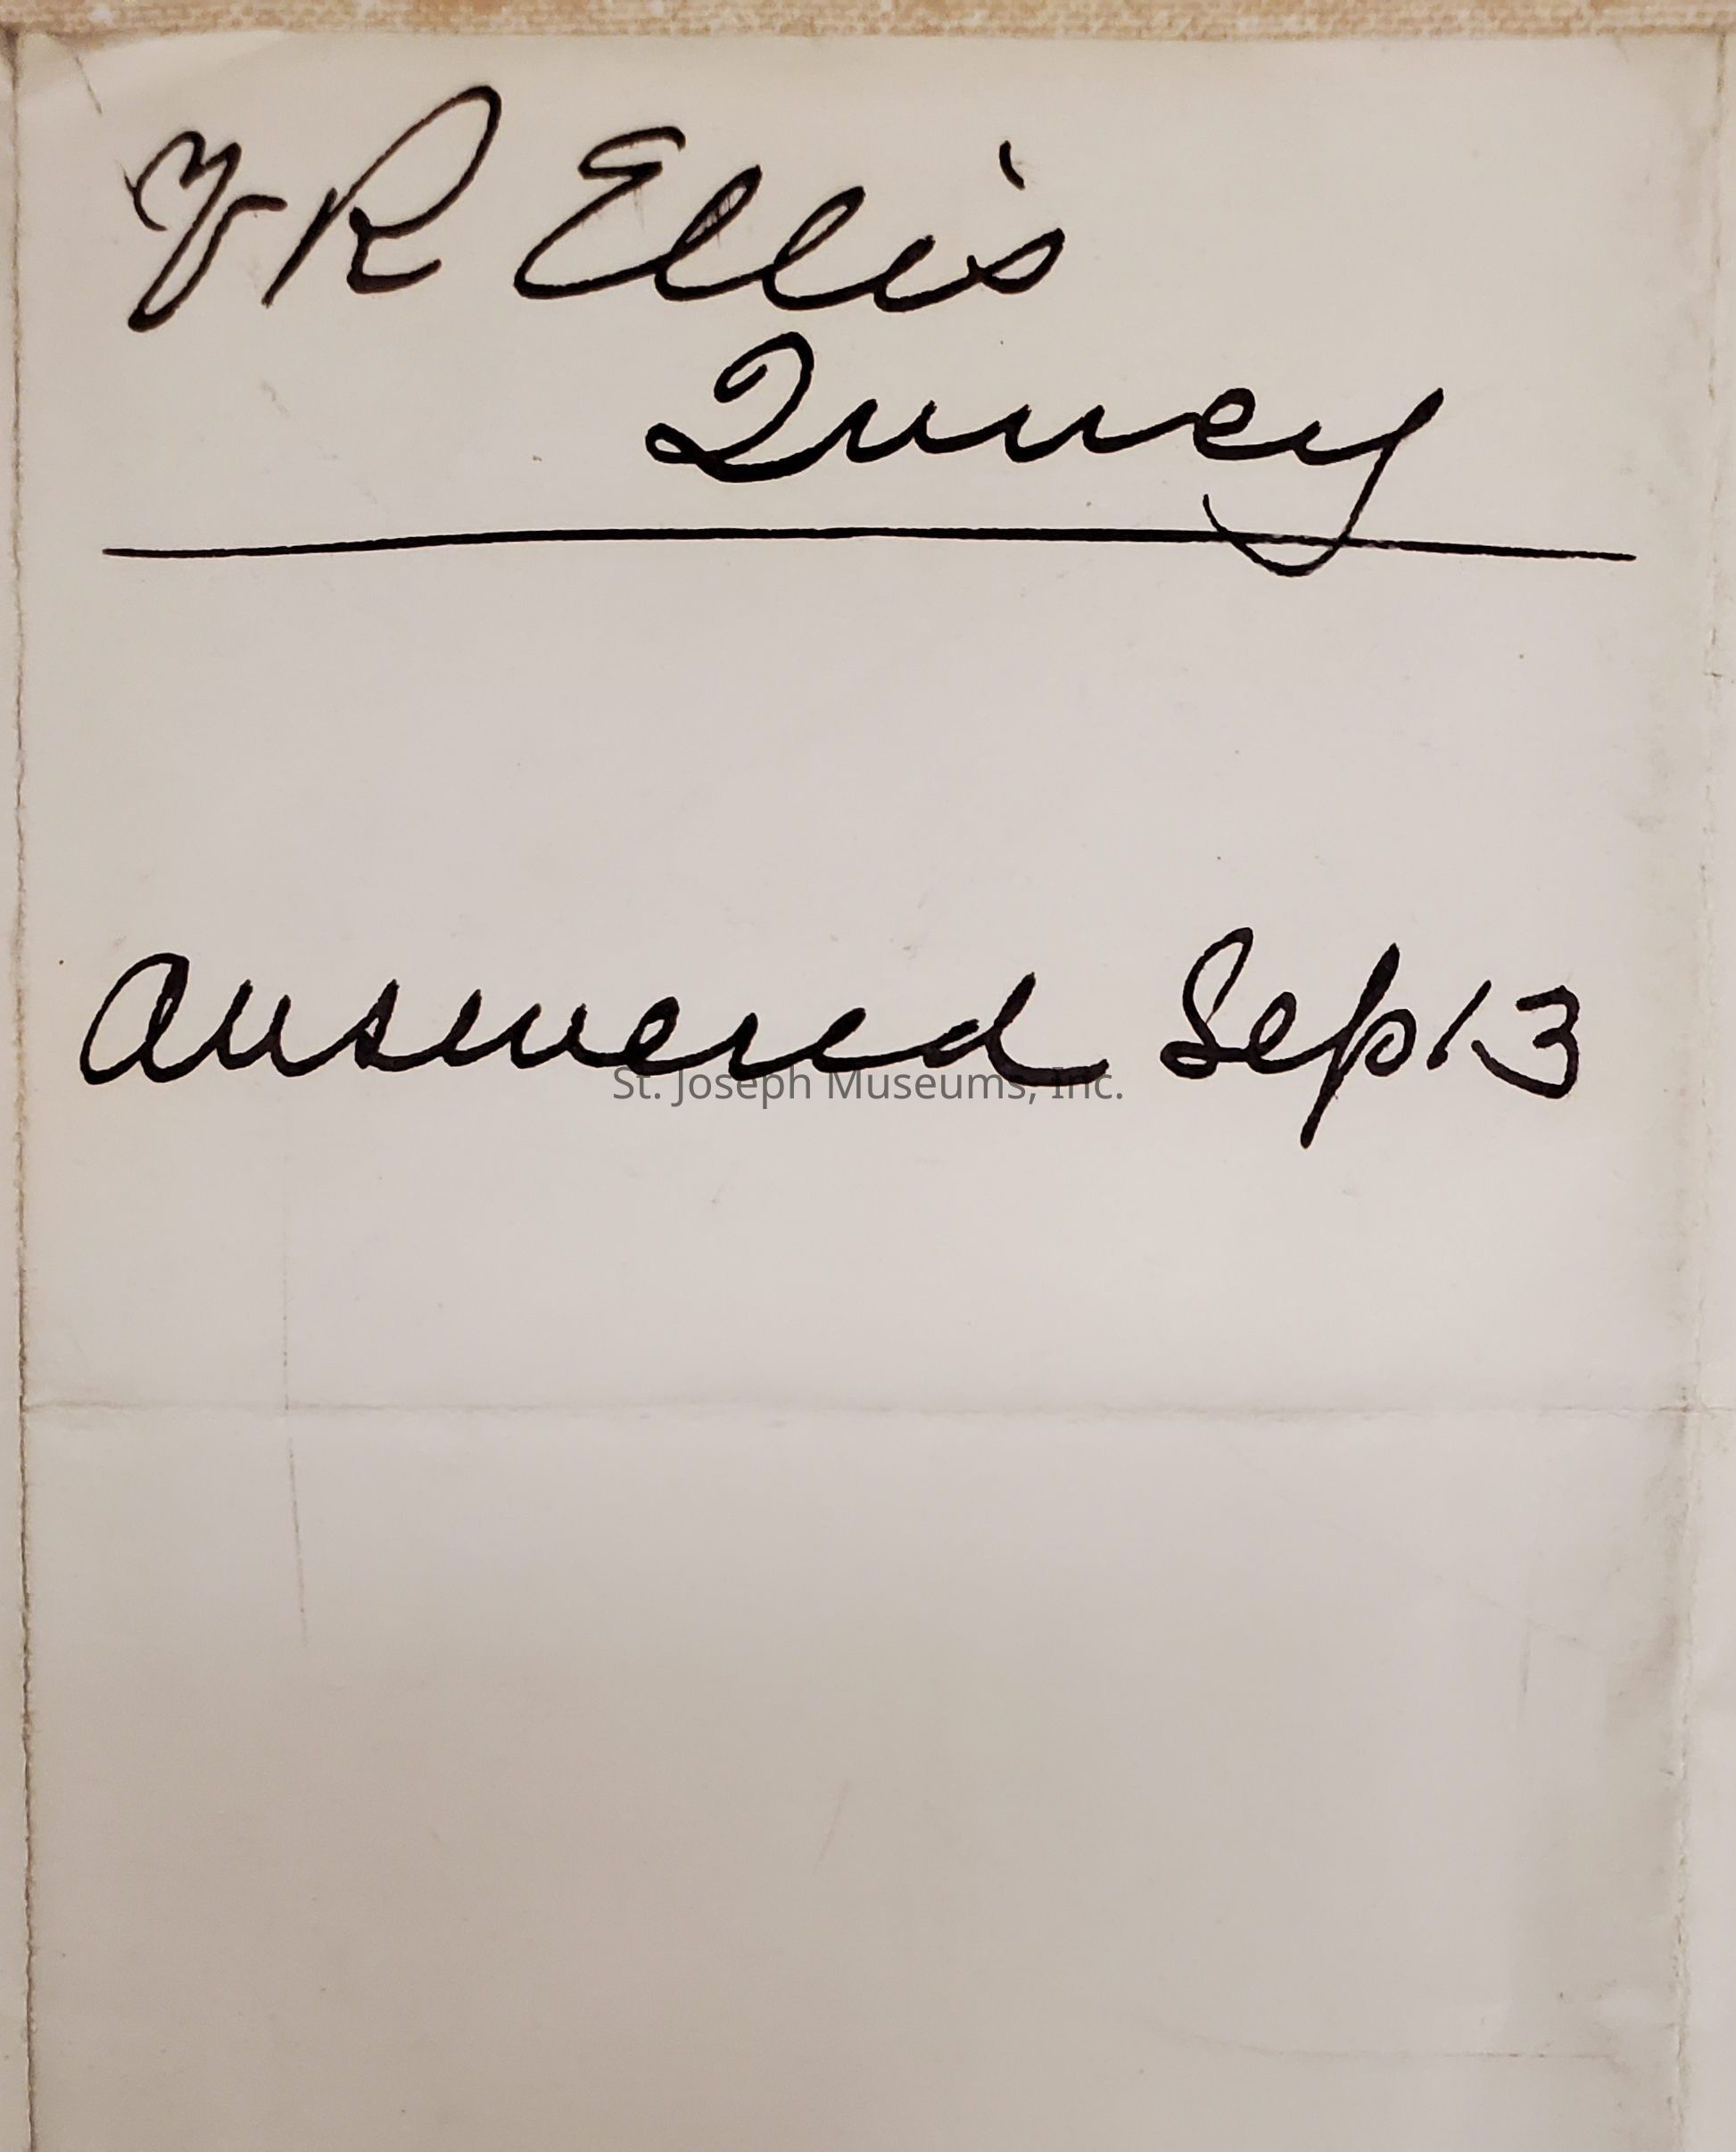 R Ellis
Quincy
answered Sep 13
St. Joseph Museums, Inc.